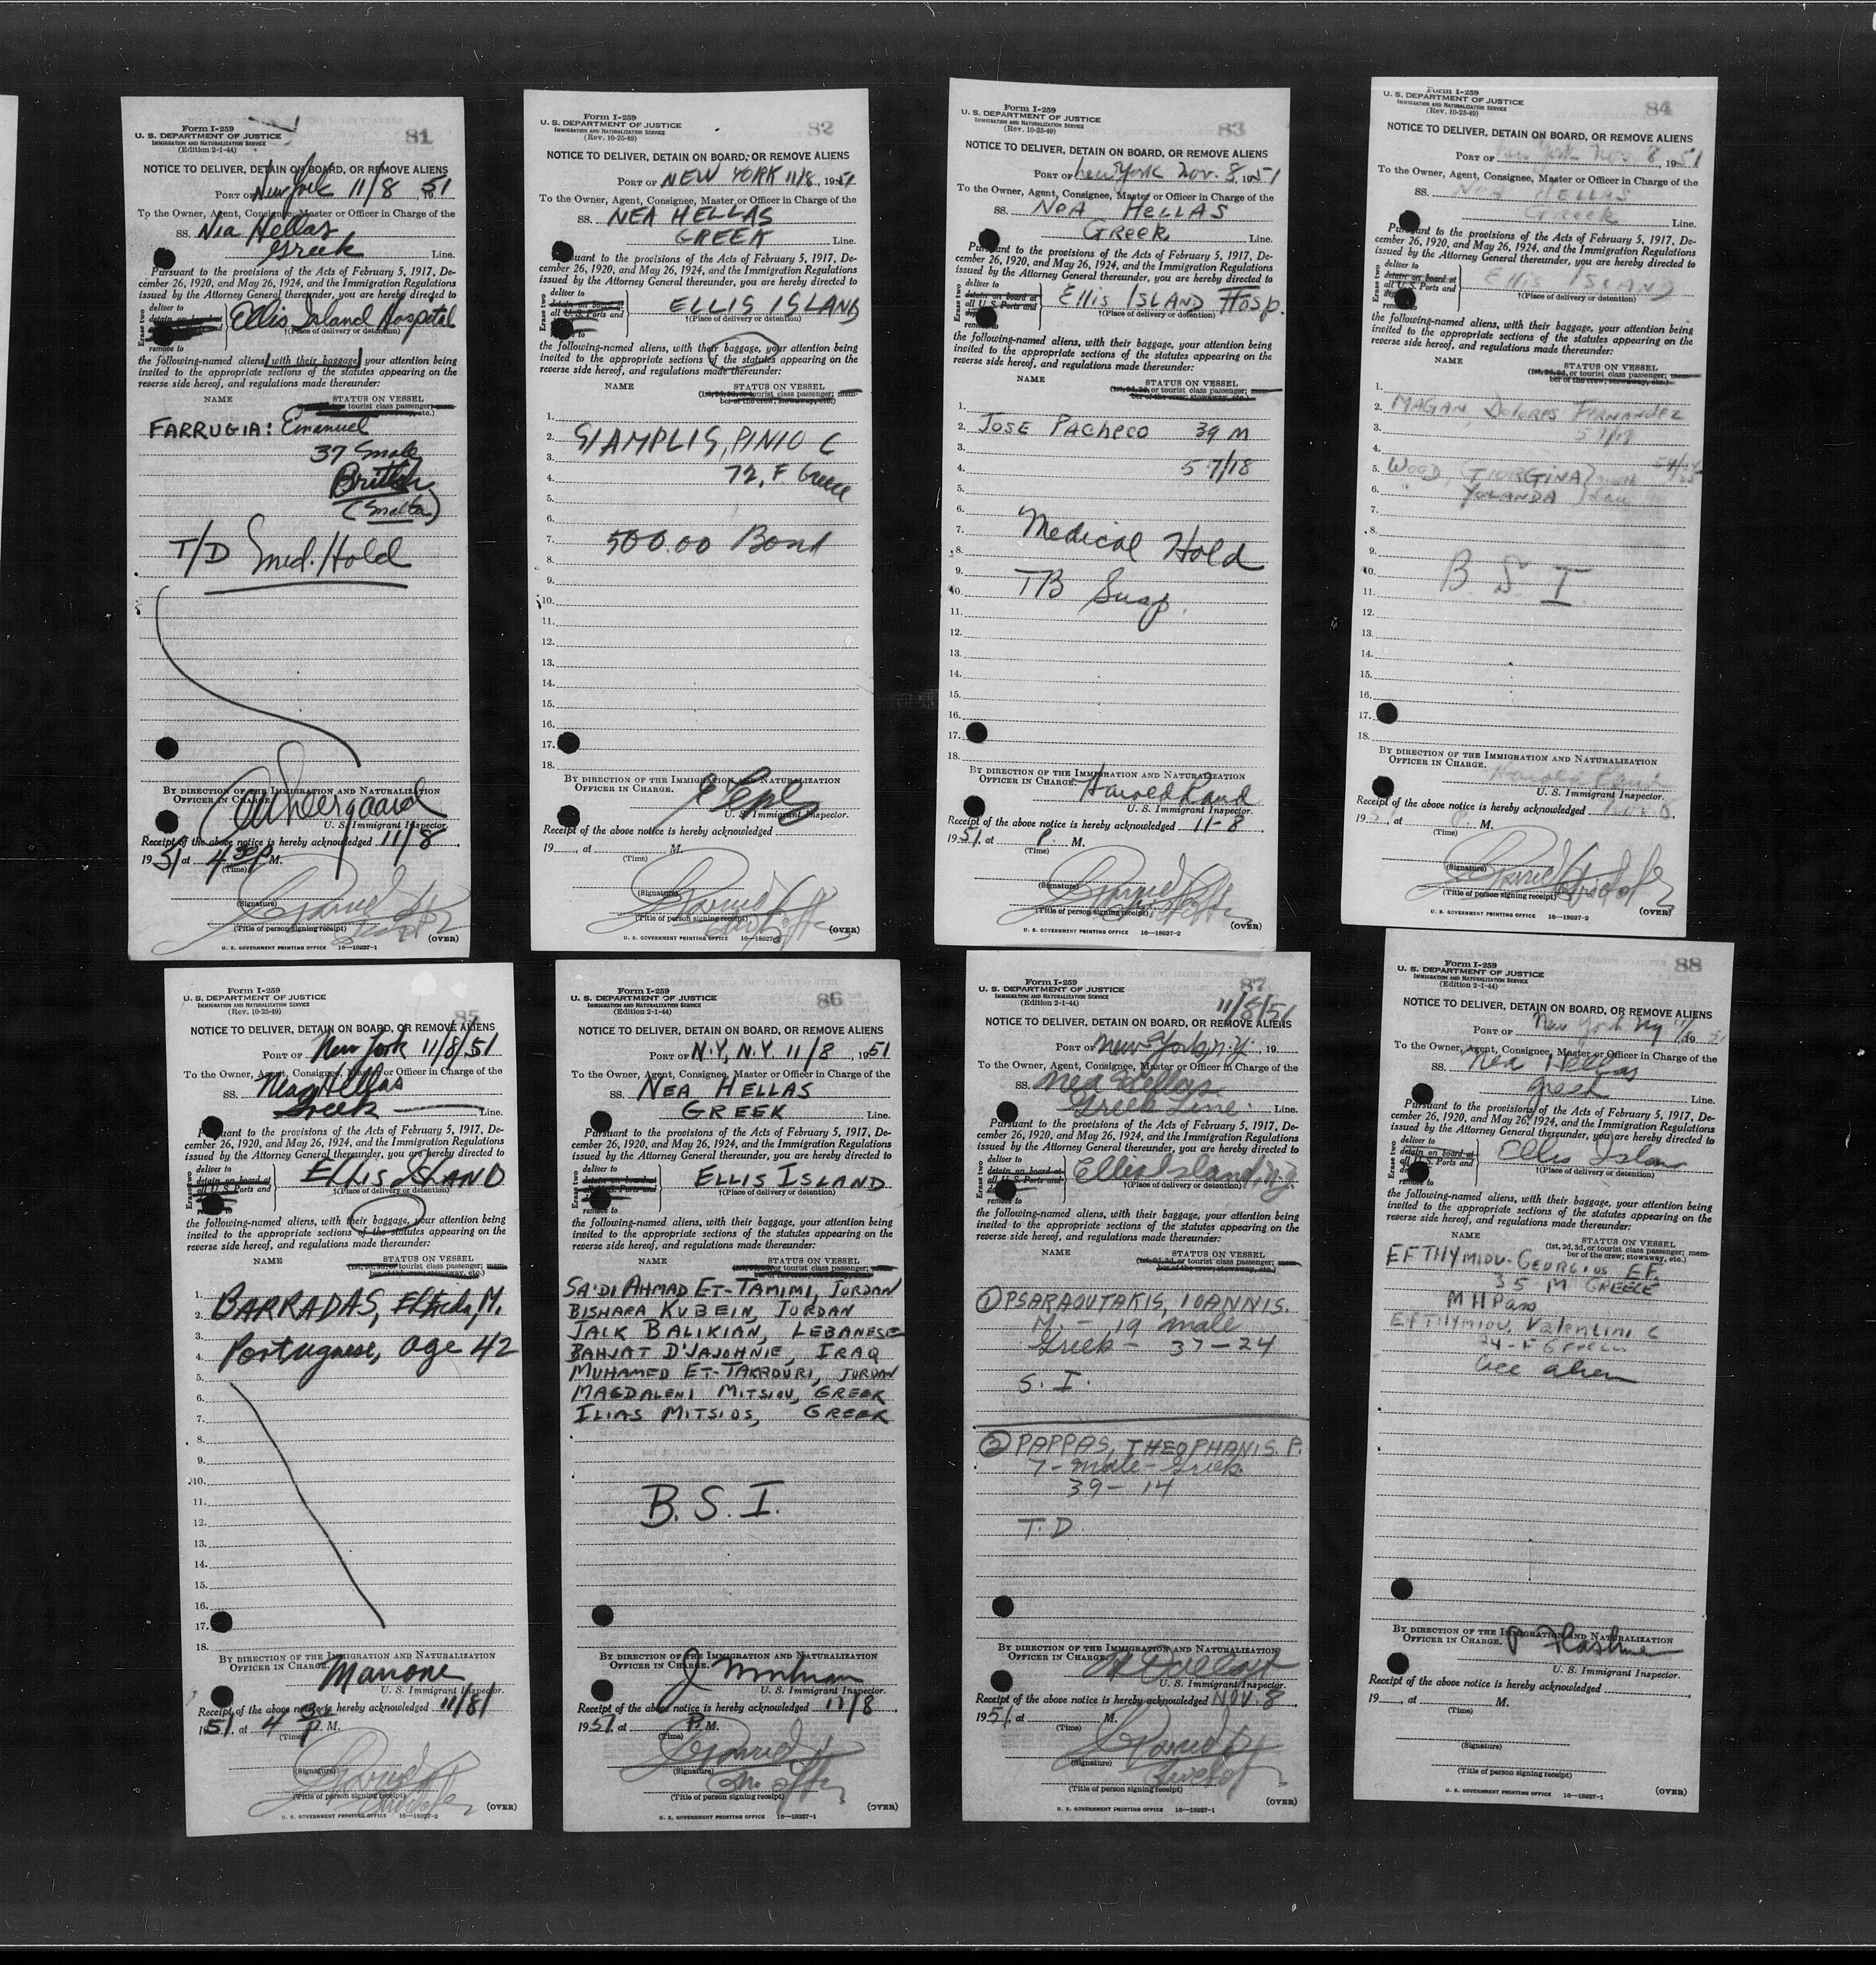 Form I-259
U. S. DEPARTMENT OF JUSTICE
IMMIGRATION AND NATURALIZATION SERVICE
(Edition 2-1-44)
81
NOTICE TO DELIVER, DETAIN ON BOARD, OR REMOVE ALIENS
PORT OF New York 11/8 , 1951
To the Owner, Agent, Consignee, Master or Officer in Charge of the
SS. Nea Hellas
Greek Line.
Pursuant to the provisions of the Acts of February 5, 1917, De-
cember 26, 1920, and May 26, 1924, and the Immigration Regulations
issued by the Attorney General thereunder, you are hereby directed to
Erase two
deliver to
detain on board at
remove to
Ellis Island Hospital
†(Place of delivery or detention)
the following-named aliens with their baggage your attention being
invited to the appropriate sections of the statutes appearing on the
reverse side hereof, and regulations made thereunder:
NAME STATUS ON VESSEL
or tourist class passenger;
etc.)
FARRUGIA: Emanuel
37 male
British
(Malta)
T/D Med. Hold
BY DIRECTION OF THE IMMIGRATION AND NATURALIZATION
OFFICER IN CHARGE
U. S. Immigrant Inspector.
Receipt of the above notice is hereby acknowledged 11/8
1951 at 4 30 P M.
(Time)
(Signature)
(Title of person signing receipt)
U. S. GOVERNMENT PRINTING OFFICE 16—18927-1
(OVER)
Form I-259
U. S. DEPARTMENT OF JUSTICE
IMMIGRATION AND NATURALIZATION SERVICE
(Rev. 10-25-49)
82
NOTICE TO DELIVER, DETAIN ON BOARD, OR REMOVE ALIENS
PORT OF NEW YORK 11/8, 1951
To the Owner, Agent, Consignee, Master or Officer in Charge of the
SS. NEA HELLAS
GREEK Line.
Pursuant to the provisions of the Acts of February 5, 1917, De-
cember 26, 1920, and May 26, 1924, and the Immigration Regulations
issued by the Attorney General thereunder, you are hereby directed to
Erase two
deliver to
detain on board at
all U.S. Ports and
to
ELLIS ISLAND
†(Place of delivery or detention)
the following-named aliens, with their baggage, your attention being
invited to the appropriate sections of the statutes appearing on the
reverse side hereof, and regulations made thereunder:
NAME STATUS ON VESSEL
(1st, 2d, 3d, or tourist class passenger; mem-
ber of the crew; stowaway, etc.)
1.
2. GIAMPLIS, PINIO C
3.
4. 72, F Greece
5.
6.
7. 500.00 Bond
8.
9.
10.
11.
12.
13.
14.
15.
16.
17.
18.
BY DIRECTION OF THE IMMIGRATION AND NATURALIZATION
OFFICER IN CHARGE.
U. S. Immigrant Inspector.
Receipt of the above notice is hereby acknowledged
19 , at M.
(Time)
(Signature)
(Title of person signing receipt)
U. S. GOVERNMENT PRINTING OFFICE 16—18927-2
(OVER)
Form I-259
U. S. DEPARTMENT OF JUSTICE
IMMIGRATION AND NATURALIZATION SERVICE
(Rev. 10-25-49)
83
NOTICE TO DELIVER, DETAIN ON BOARD, OR REMOVE ALIENS
PORT OF New York Nov. 8, 1951
To the Owner, Agent, Consignee, Master or Officer in Charge of the
SS. NeA HeLLAS
GReek Line.
Pursuant to the provisions of the Acts of February 5, 1917, De-
cember 26, 1920, and May 26, 1924, and the Immigration Regulations
issued by the Attorney General thereunder, you are hereby directed to
Erase two
deliver to
detain on board at
all U.S. Ports and
remove to
Ellis ISLAND Hosp.
†(Place of delivery or detention)
the following-named aliens, with their baggage, your attention being
invited to the appropriate sections of the statutes appearing on the
reverse side hereof, and regulations made thereunder:
NAME STATUS ON VESSEL
(1st, 2d, 3d, or tourist class passenger; mem-
ber of the crew; stowaway, etc.)
1.
2. JOSE PACHECO 39 M
3.
4. 57/18
5.
6.
7. Medical Hold
8.
9.
10. TB Susp.
11.
12.
13.
14.
15.
16.
17.
18.
BY DIRECTION OF THE IMMIGRATION AND NATURALIZATION
OFFICER IN CHARGE. Harold Rand
U. S. Immigrant Inspector.
Receipt of the above notice is hereby acknowledged 11-8 ,
1951, at P. M.
(Time)
(Signature)
(Title of person signing receipt)
U. S. GOVERNMENT PRINTING OFFICE 16—18927-2
(OVER)
Form I-259
U. S. DEPARTMENT OF JUSTICE
IMMIGRATION AND NATURALIZATION SERVICE
(Rev. 10-25-49)
84
NOTICE TO DELIVER, DETAIN ON BOARD, OR REMOVE ALIENS
PORT OF New York Nov 8, 1951
To the Owner, Agent, Consignee, Master or Officer in Charge of the
SS. Nea HELLAS
Greek Line.
Pursuant to the provisions of the Acts of February 5, 1917, De-
cember 26, 1920, and May 26, 1924, and the Immigration Regulations
issued by the Attorney General thereunder, you are hereby directed to
Erase two
deliver to
detain on board at
all U.S. Ports and
ELLIS ISLAND
†(Place of delivery or detention)
the following-named aliens, with their baggage, your attention being
invited to the appropriate sections of the statutes appearing on the
reverse side hereof, and regulations made thereunder:
NAME STATUS ON VESSEL
(1st, 2d, 3d, or tourist class passenger; mem-
ber of the crew; stowaway, etc.)
1.
2. MAGAN, Dolores FERNANDEZ
3. 57/19
4.
5. WOOD,
6. YOLANDA
7.
8.
9.
10. B. S. I.
11.
12.
13.
14.
15.
16.
17.
18.
BY DIRECTION OF THE IMMIGRATION AND NATURALIZATION
OFFICER IN CHARGE. Harold Rand
U. S. Immigrant Inspector.
Receipt of the above notice is hereby acknowledged Nov. 8,
1951, at P. M.
(Time)
(Signature)
(Title of person signing receipt)
U. S. GOVERNMENT PRINTING OFFICE 16—18927-2
(OVER)
Form I-259
U. S. DEPARTMENT OF JUSTICE
IMMIGRATION AND NATURALIZATION SERVICE
(Rev. 10-25-49)
85
NOTICE TO DELIVER, DETAIN ON BOARD, OR REMOVE ALIENS
PORT OF New York 11/8/51
To the Owner, Agent, Consignee, Master or Officer in Charge of the
SS. Nea Hellas
Greek Line.
Pursuant to the provisions of the Acts of February 5, 1917, De-
cember 26, 1920, and May 26, 1924, and the Immigration Regulations
issued by the Attorney General thereunder, you are hereby directed to
Erase two
deliver to
detain on board at
all U.S. Ports and
ELLIS ISLAND
†(Place of delivery or detention)
the following-named aliens, with their baggage, your attention being
invited to the appropriate sections of the statutes appearing on the
reverse side hereof, and regulations made thereunder:
NAME STATUS ON VESSEL
(1st, 2d, 3d, or tourist class passenger; mem-
ber of the crew; stowaway, etc.)
1.
2. BARRADAS, M.
3.
4. Portuguese, age 42
5.
6.
7.
8.
9.
10.
11.
12.
13.
14.
15.
16.
17.
18.
BY DIRECTION OF THE IMMIGRATION AND NATURALIZATION
OFFICER IN CHARGE. Marrone
U. S. Immigrant Inspector.
Receipt of the above notice is hereby acknowledged 11/8/
1951, at 4 30 P M.
(Time)
(Signature)
(Title of person signing receipt)
U. S. GOVERNMENT PRINTING OFFICE 16—18927-2
(OVER)
Form I-259
U. S. DEPARTMENT OF JUSTICE
IMMIGRATION AND NATURALIZATION SERVICE
(Edition 2-1-44)
86
NOTICE TO DELIVER, DETAIN ON BOARD, OR REMOVE ALIENS
PORT OF N.Y, N.Y. 11/8 , 1951
To the Owner, Agent, Consignee, Master or Officer in Charge of the
SS. NEA HELLAS
GREEK Line.
Pursuant to the provisions of the Acts of February 5, 1917, De-
cember 26, 1920, and May 26, 1924, and the Immigration Regulations
issued by the Attorney General thereunder, you are hereby directed to
Erase two
deliver to
detain on board at
all U.S. Ports and
ELLIS ISLAND
†(Place of delivery or detention)
the following-named aliens, with their baggage, your attention being
invited to the appropriate sections of the statutes appearing on the
reverse side hereof, and regulations made thereunder:
NAME STATUS ON VESSEL
(1st, 2d, 3d, or tourist class passenger; mem-
ber of the crew; stowaway, etc.)
SA'DI AHMAD ET-TAMIMI, JORDAN
BISHARA KUBEIN, JORDAN
JALK BALIKIAN, LEBANESE
BAHJAT D'JAJOHNIE, IRAQ
MUHAMED ET-TAKROURI, JORDAN
MAGDALENI MITSIOU, GREEK
ILIAS MITSIOS, GREEK
B. S. I.
BY DIRECTION OF THE IMMIGRATION AND NATURALIZATION
OFFICER IN CHARGE.
U. S. Immigrant Inspector.
Receipt of the above notice is hereby acknowledged 11/8 ,
1951, at P. M.
(Time)
(Signature)
(Title of person signing receipt)
U. S. GOVERNMENT PRINTING OFFICE 16—18927-1
(OVER)
Form I-259
U. S. DEPARTMENT OF JUSTICE
IMMIGRATION AND NATURALIZATION SERVICE
(Edition 2-1-44)
87
11/8/51
NOTICE TO DELIVER, DETAIN ON BOARD, OR REMOVE ALIENS
PORT OF New York, N.Y. , 19
To the Owner, Agent, Consignee, Master or Officer in Charge of the
SS. Nea Hellas
Greek Line. Line.
Pursuant to the provisions of the Acts of February 5, 1917, De-
cember 26, 1920, and May 26, 1924, and the Immigration Regulations
issued by the Attorney General thereunder, you are hereby directed to
Erase two
deliver to
detain on board at
all U.S. Ports and
remove to
Ellis Island, N.Y.
†(Place of delivery or detention)
the following-named aliens, with their baggage, your attention being
invited to the appropriate sections of the statutes appearing on the
reverse side hereof, and regulations made thereunder:
NAME STATUS ON VESSEL
(1st, 2d, 3d, or tourist class passenger; mem-
ber of the crew; stowaway, etc.)
① PSARAOUTAKIS, IOANNIS.
M. - 19 male
Greek - 37-24
S. I.
② PAPPAS, THEOPHANIS. P.
7 - male - Greek.
39 - 14
T. D.
BY DIRECTION OF THE IMMIGRATION AND NATURALIZATION
OFFICER IN CHARGE.
U. S. Immigrant Inspector.
Receipt of the above notice is hereby acknowledged NOV. 8 ,
1951, at M.
(Time)
(Signature)
(Title of person signing receipt)
U. S. GOVERNMENT PRINTING OFFICE 16—18927-1
(OVER)
Form I-259
U. S. DEPARTMENT OF JUSTICE
IMMIGRATION AND NATURALIZATION SERVICE
(Edition 2-1-44)
88
NOTICE TO DELIVER, DETAIN ON BOARD, OR REMOVE ALIENS
PORT OF New York NY 11/8 1951
To the Owner, Agent, Consignee, Master or Officer in Charge of the
SS. Nea Hellas
Greek Line.
Pursuant to the provisions of the Acts of February 5, 1917, De-
cember 26, 1920, and May 26, 1924, and the Immigration Regulations
issued by the Attorney General thereunder, you are hereby directed to
Erase two
deliver to
detain on board at
all U.S. Ports and
remove to
Ellis Island
†(Place of delivery or detention)
the following-named aliens, with their baggage, your attention being
invited to the appropriate sections of the statutes appearing on the
reverse side hereof, and regulations made thereunder:
NAME STATUS ON VESSEL
(1st, 2d, 3d, or tourist class passenger; mem-
ber of the crew; stowaway, etc.)
EFTHYMIOU-GEORGIOS EF.
35 M GREECE
M H Pass
EFTHYMIOU, Valentini C
24 - F Greece
acc alien
BY DIRECTION OF THE IMMIGRATION AND NATURALIZATION
OFFICER IN CHARGE.
U. S. Immigrant Inspector.
Receipt of the above notice is hereby acknowledged ,
19 , at M.
(Time)
(Signature)
(Title of person signing receipt)
U. S. GOVERNMENT PRINTING OFFICE 16—18927-1
(OVER)